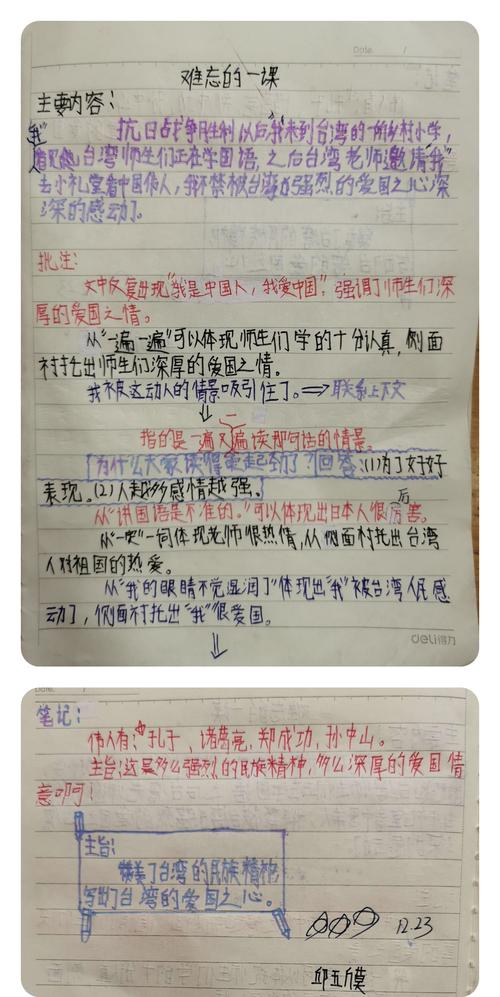 Date. /
难忘的一课
主要内容：
抗日战争胜利以后,"我"来到台湾的一所乡村小学,
"我"看见他台湾师生们正在学国语,之后台湾老师邀请"我"
去小礼堂看中国伟人,我不禁被台湾强烈的爱国之心深
深的感动了。
批注：
文中反复出现"我是中国人,我爱中国",强调了师生们深
厚的爱国之情。
从"一遍一遍"可以体现师生们学的十分认真,侧面
衬托出师生们深厚的爱国之情。
我被这动人的情景吸引住了。⇒联系上下文
指的是一遍又一遍读那句话的情景。
为什么大家读得更起劲了?回答:(1)为了好好
表现。(2)人越多感情越强。
从"讲国语是不准的。"可以体现出日本人很厉害。
后
从"一"一词体现老师很热情,从侧面衬托出台湾
人对祖国的热爱。
从"我的眼睛不觉湿润了"体现出"我"被台湾人民感
动了,侧面衬托出"我"很爱国。
deli得力
Date. /
笔记：
伟人有:孔子,诸葛亮,郑成功,孙中山。
主旨:这是多么强烈的民族精神,多么深厚的爱国情
意啊!
主旨:
赞美了台湾的民族精神
写出了台湾的爱国之心。
12.23